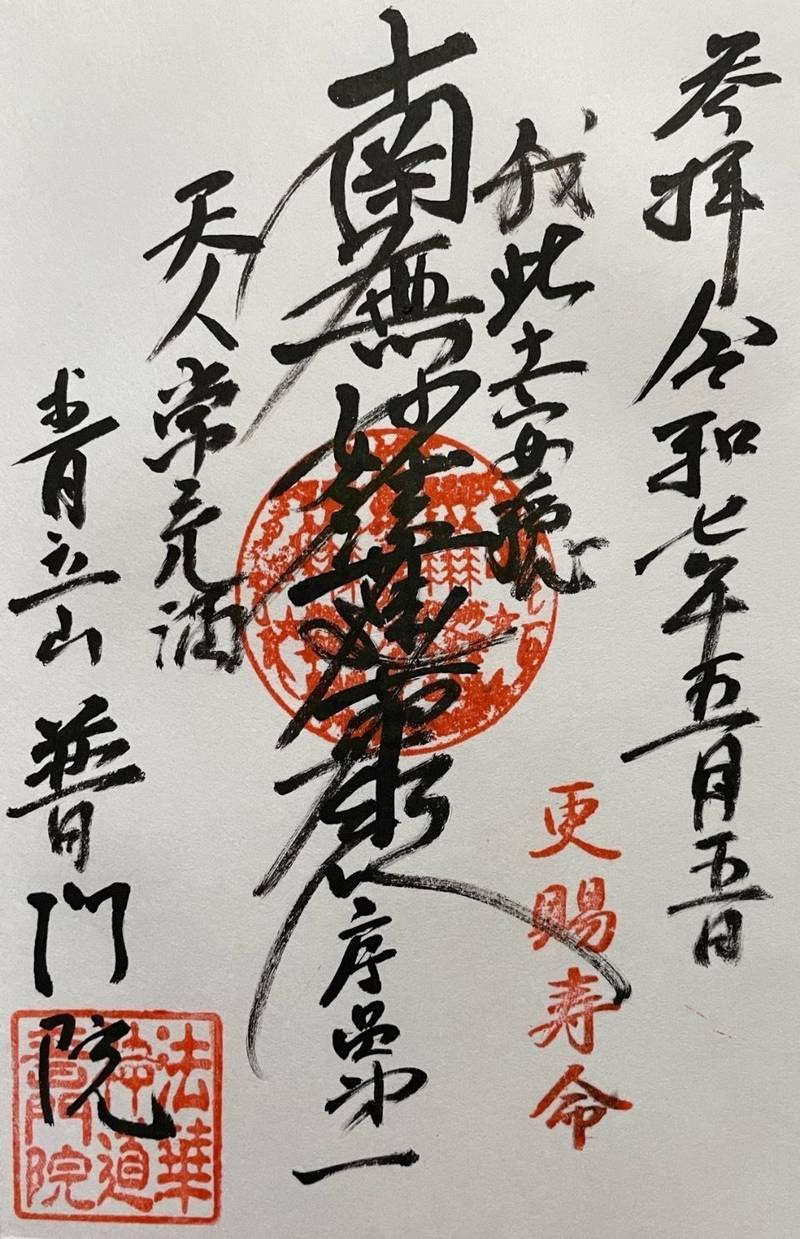 参拝 令和七年五月五日
我此土安穏
更賜寿命
南無妙法蓮華経 序品第一
天人常充満
青立山 普門院
法華
普門院